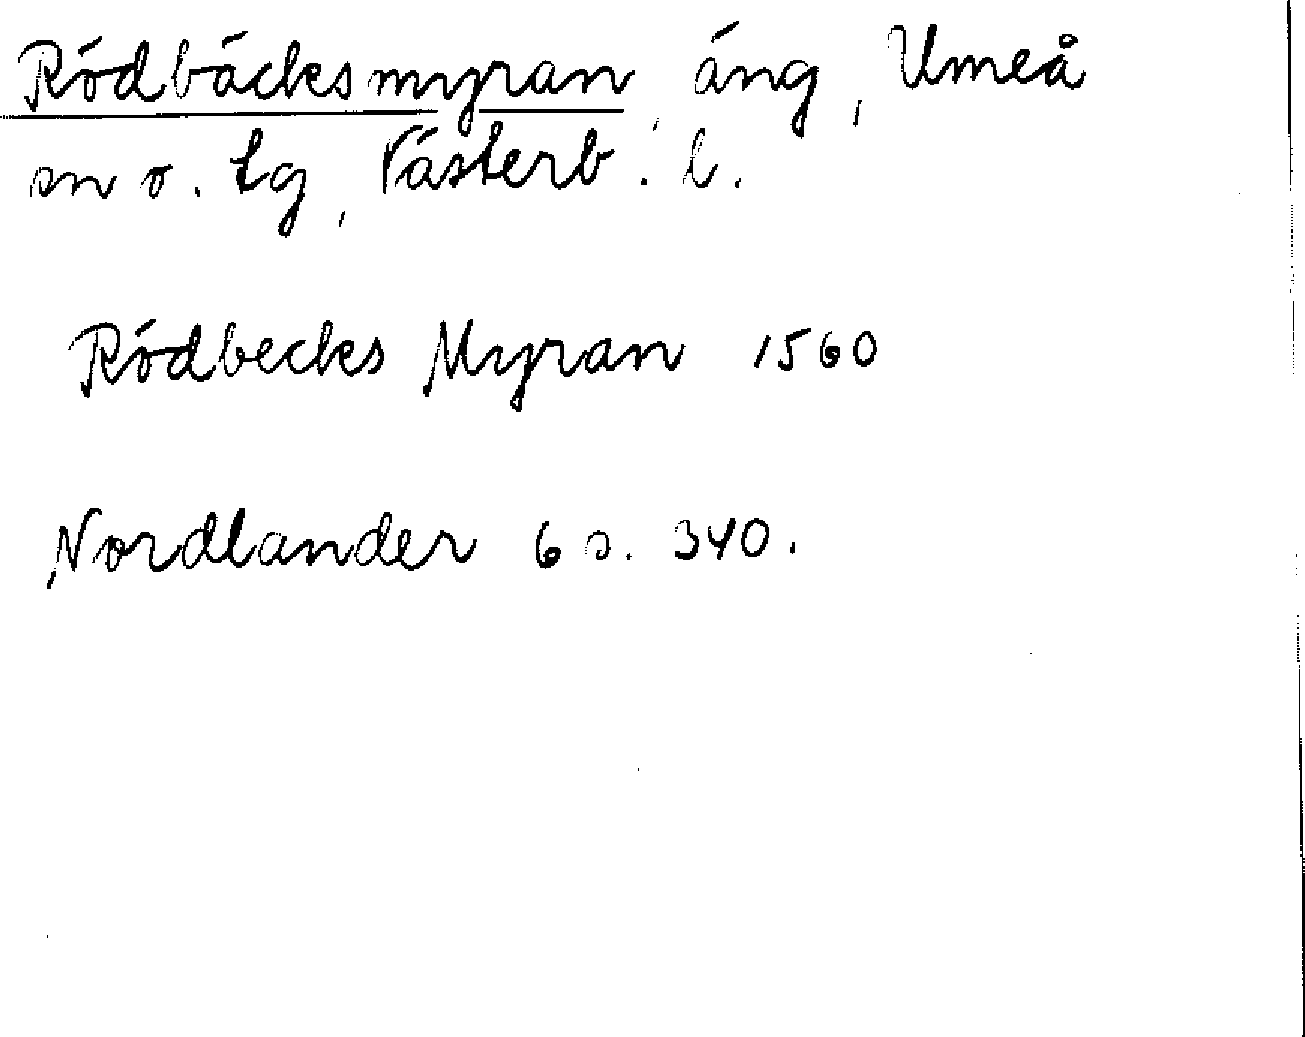 Rödbäcksmyran, äng, Umeå
sn o. tg, Västerb. l.
Rödbecks Myran 1560
Nordlander 6 s. 340.